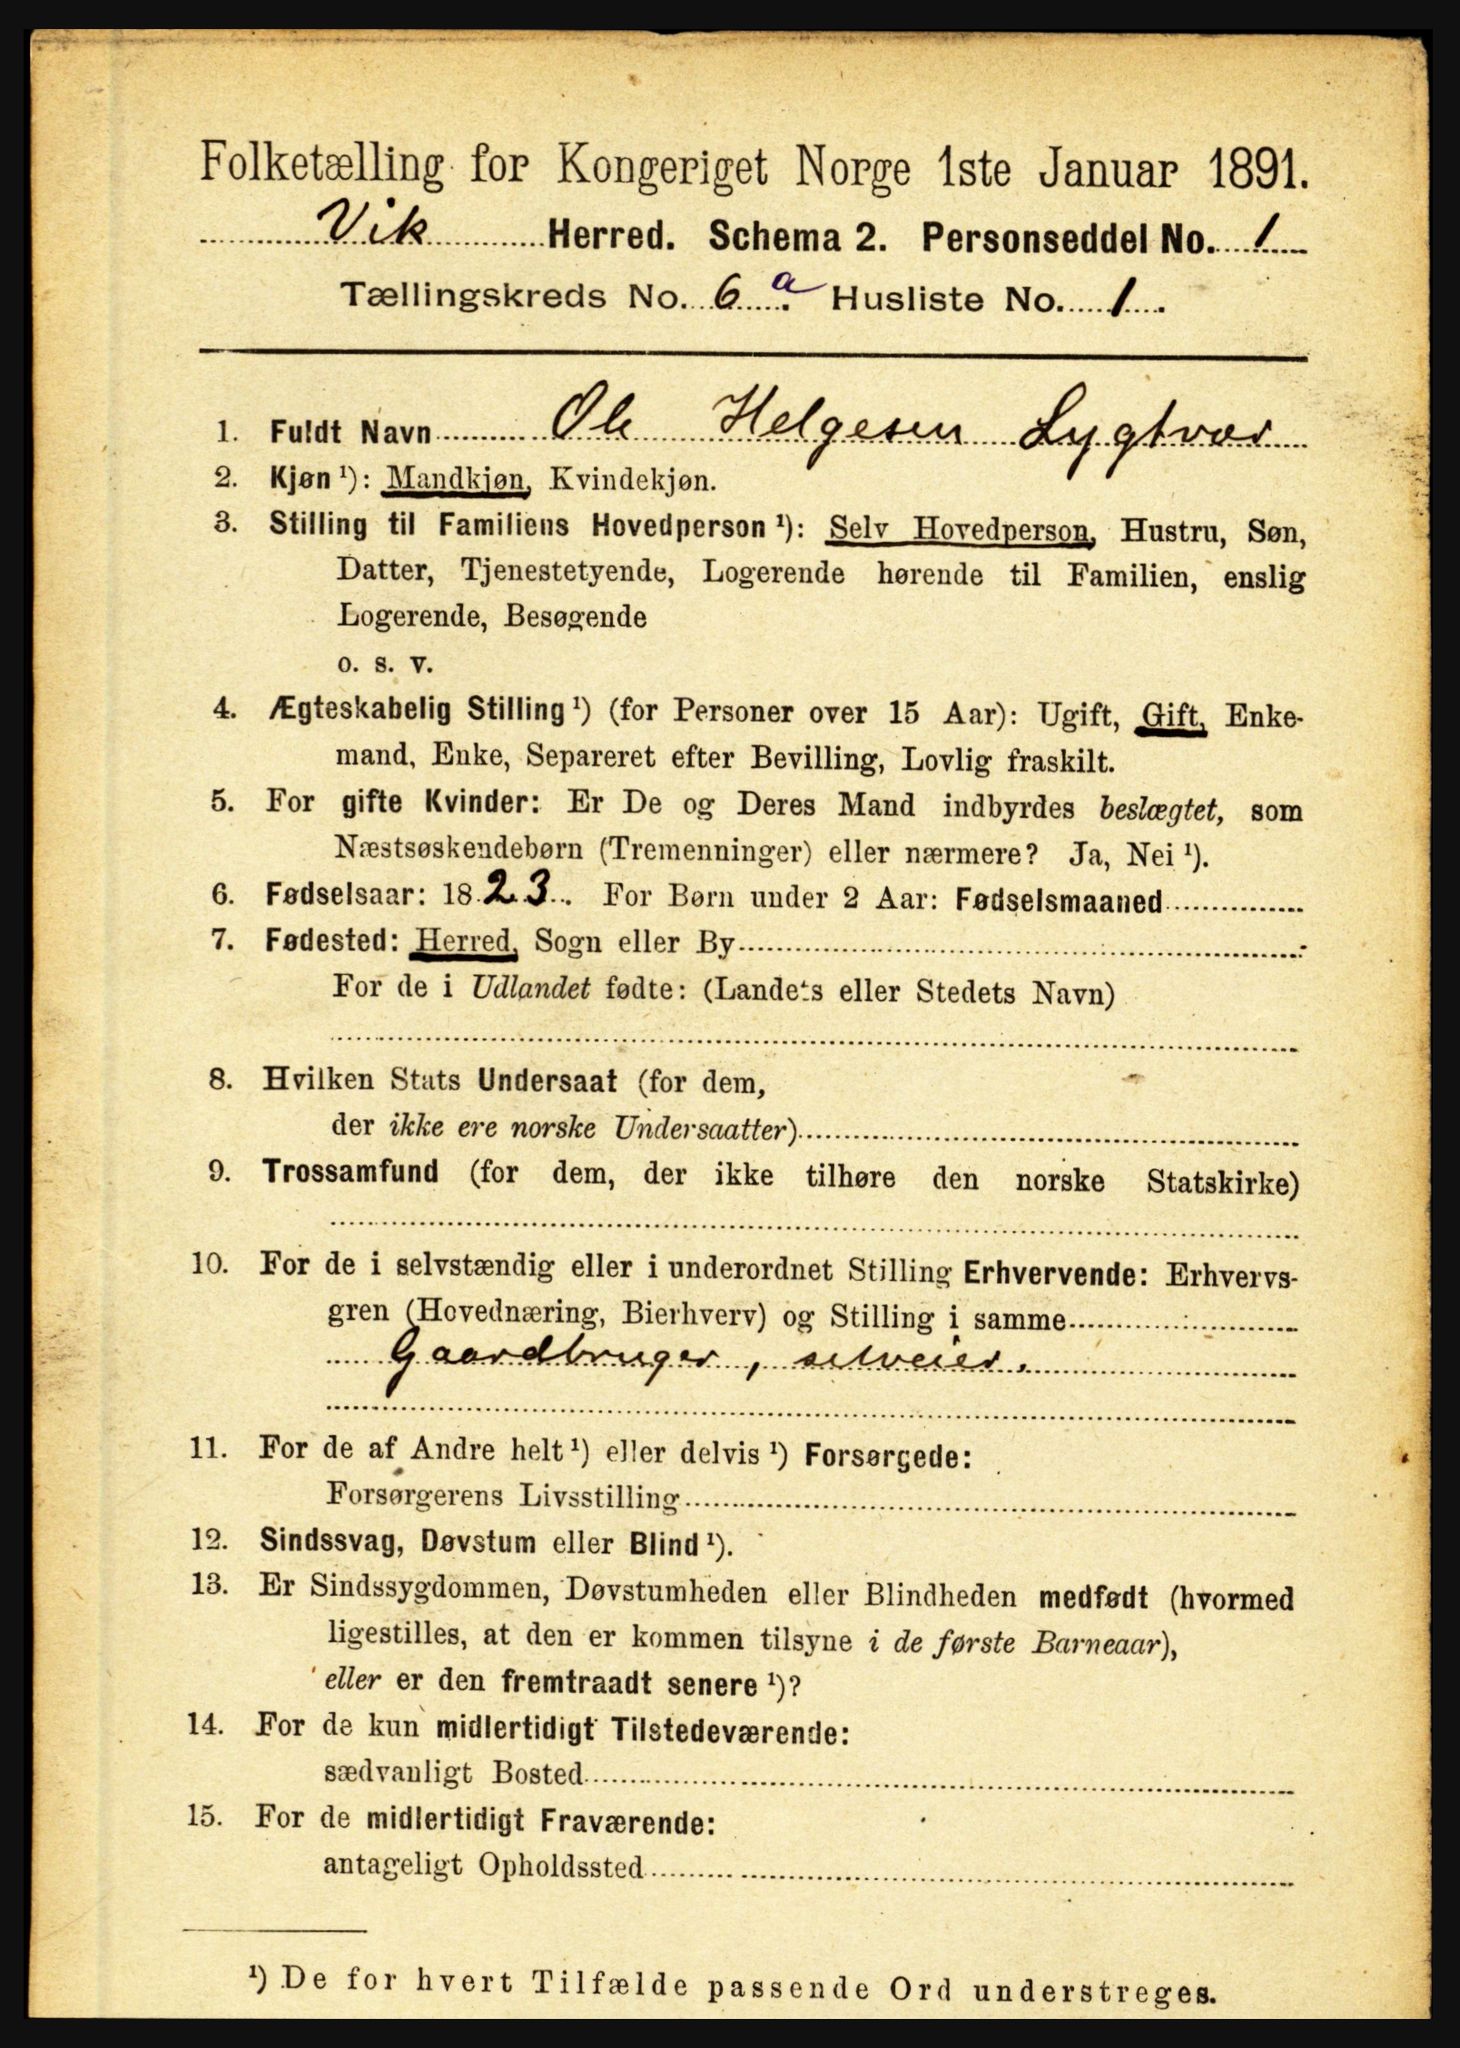 Folketælling for Kongeriget Norge 1ste Januar 1891.
Vik Herred. Schema 2. Personseddel No. 1
Tællingskreds No. 6 a. Husliste No. 1.
1. Fuldt Navn Ole Helgesen Lygtvor
2. Kjøn ¹): Mandkjøn, Kvindekjøn.
3. Stilling til Familiens Hovedperson ¹): Selv Hovedperson, Hustru, Søn,
Datter, Tjenestetyende, Logerende hørende til Familien, enslig
Logerende, Besøgende
o. s. v.
4. Ægteskabelig Stilling ¹) (for Personer over 15 Aar): Ugift, Gift, Enke-
mand, Enke, Separeret efter Bevilling, Lovlig fraskilt.
5. For gifte Kvinder: Er De og Deres Mand indbyrdes beslægtet, som
Næstsøskendebørn (Tremenninger) eller nærmere? Ja, Nei ¹).
6. Fødselsaar: 1823. For Børn under 2 Aar: Fødselsmaaned
7. Fødested: Herred, Sogn eller By
For de i Udlandet fødte: (Landets eller Stedets Navn)
8. Hvilken Stats Undersaat (for dem,
der ikke ere norske Undersaatter)
9. Trossamfund (for dem, der ikke tilhøre den norske Statskirke)
10. For de i selvstændig eller i underordnet Stilling Erhvervende: Erhvervs-
gren (Hovednæring, Bierhverv) og Stilling i samme
Gaardbruger, selveier.
11. For de af Andre helt ¹) eller delvis ¹) Forsørgede:
Forsørgerens Livsstilling
12. Sindssvag, Døvstum eller Blind ¹).
13. Er Sindssygdommen, Døvstumheden eller Blindheden medfødt (hvormed
ligestilles, at den er kommen tilsyne i de første Barneaar),
eller er den fremtraadt senere ¹)?
14. For de kun midlertidigt Tilstedeværende:
sædvanligt Bosted
15. For de midlertidigt Fraværende:
antageligt Opholdssted
¹) De for hvert Tilfælde passende Ord understreges.